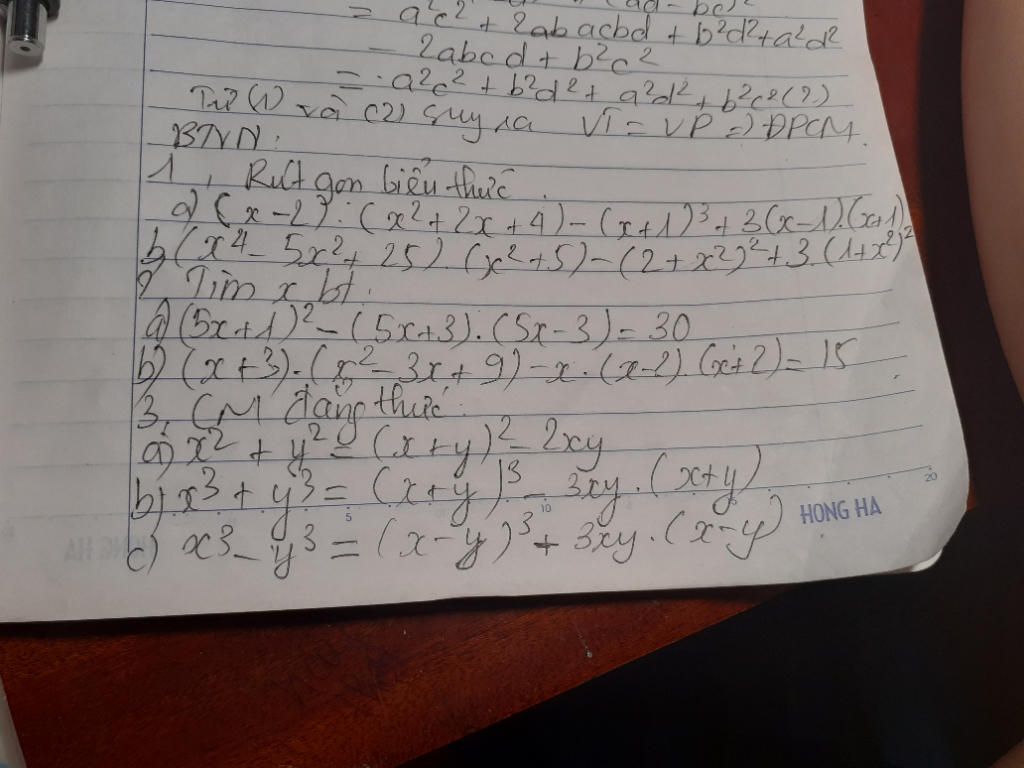 = a²c² + 2abacbd + b²d² + a²d²
- 2abcd + b²c²
= a²c² + b²d² + a²d² + b²c² (2)
Từ (1) và (2) suy ra VT = VP => ĐPCM.
BTVN:
1, Rút gọn biểu thức.
a) (x-2).(x²+2x+4)-(x+1)³+3(x-1).(x+1)
b) (x⁴-5x²+25).(x²+5)-(2+x²)²+3.(1+x²)²
2 Tìm x bt.
a) (5x+1)²-(5x+3).(5x-3)=30
b) (x+3).(x²-3x+9)-x.(x-2).(x+2)=15
3, CM đẳng thức:
a) x²+y²=(x+y)²-2xy
b) x³+y³=(x+y)³-3xy.(x+y)
5 10 20
HONG HA
c) x³-y³=(x-y)³+3xy.(x-y)